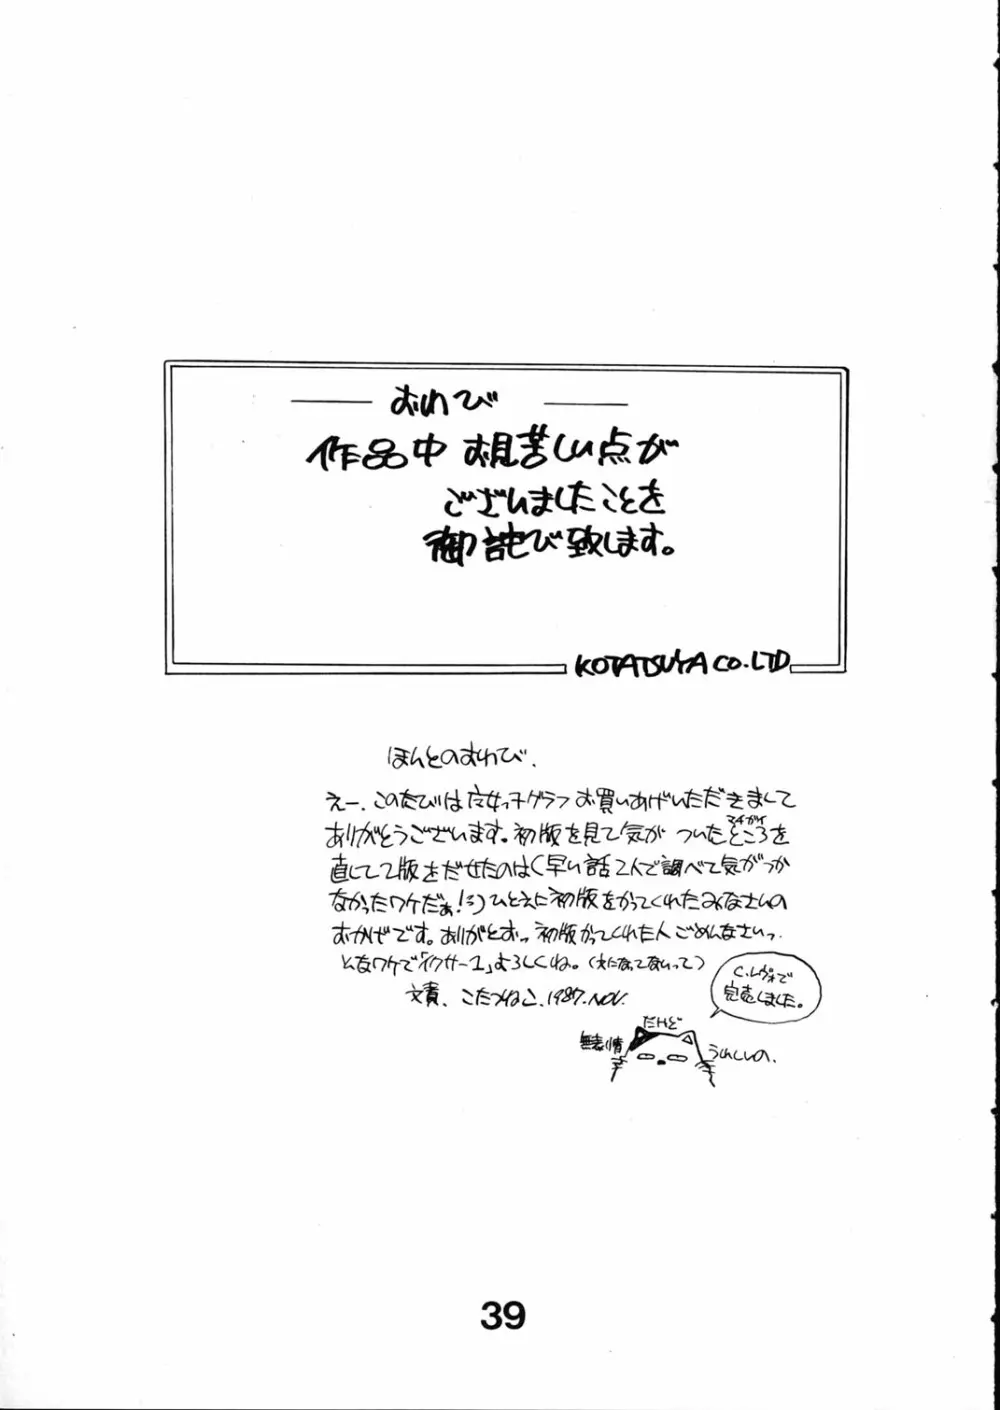 おわび
作品中 お見苦しい点が
ございましたことを
御詫び致します。
KOTATSUYA CO.LTD
ほんとのおわび.
えー、このたびは グラフお買いあげいただきまして
ありがとうございます。初版を見て気が ついたところを
マチガイ
直して2版をだせたのは(早い話2人で調べて気がつか
なかったワケだぁ!ミ)ひとえに初版をかってくれたみなさんの
おかげです。ありがとおっ 初版かってくれた人ごめんなさいっ.
んなワケで「イクサー1」よろしくね。(えになってないって)
文責、こたつねこ.1987.NOV.
C.レヴォで
完売しました。
だけど
無表情
うれしいの.
39